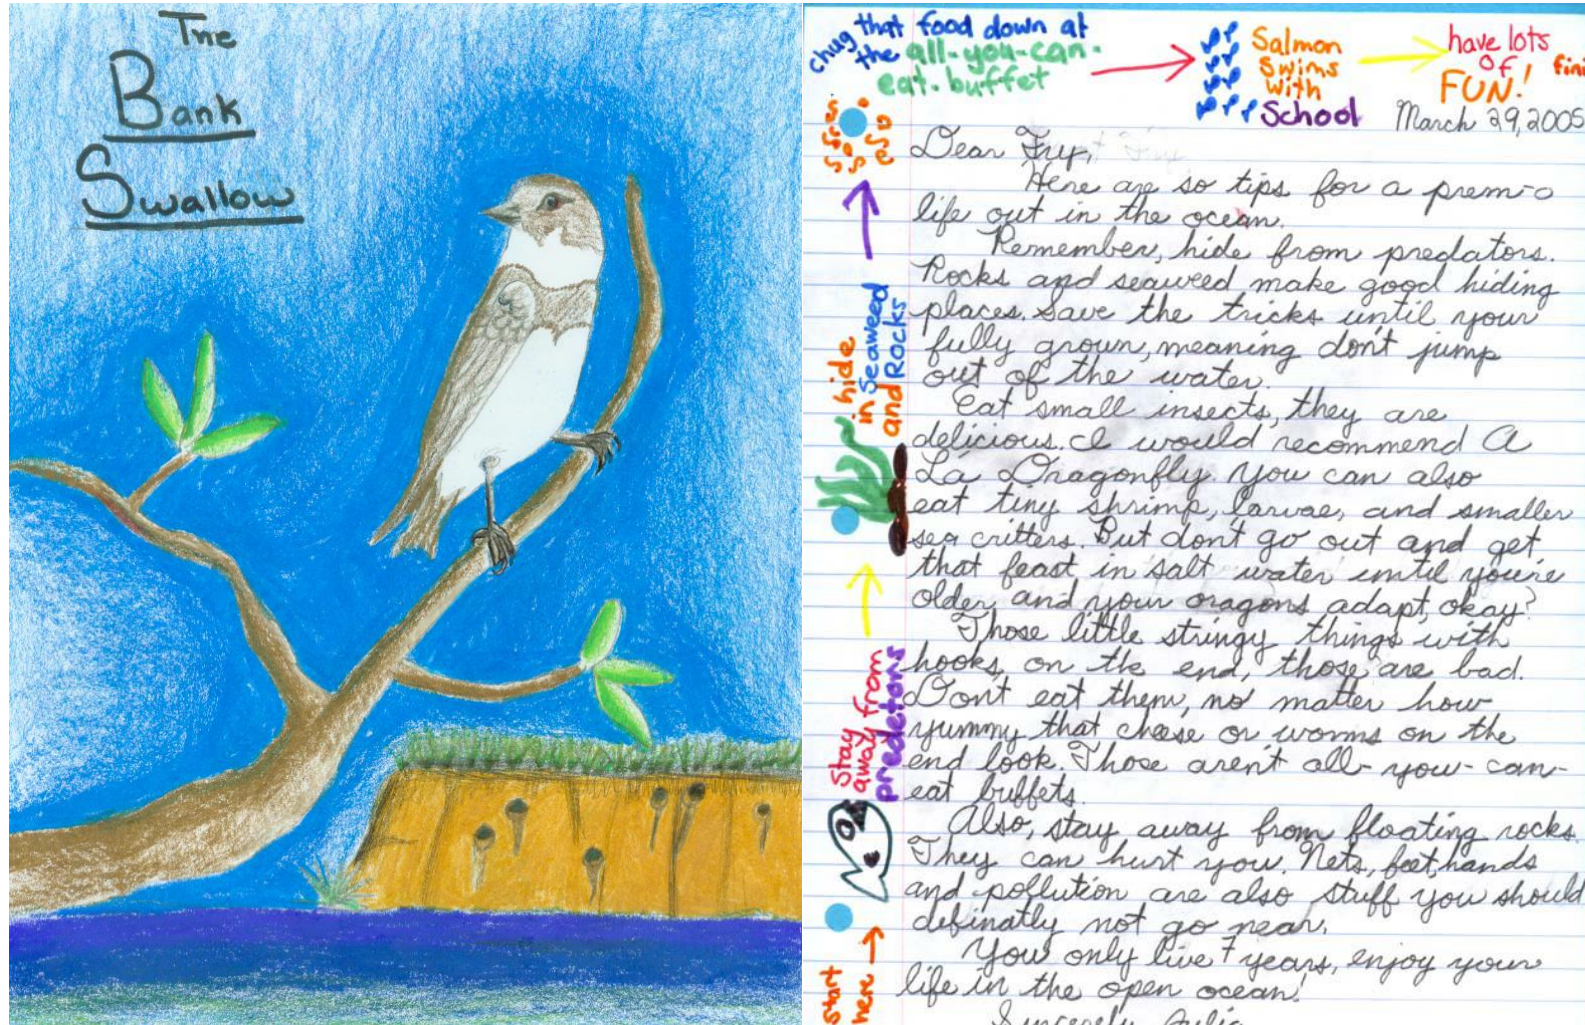 The
Bank
Swallow
chug that food down at
the all-you-can-
eat-buffet
Salmon
Swims
with
School
have lots
of
FUN!
March 29, 2005
Dear Fry,
Here are so tips for a prem-o
life out in the ocean.
Remember, hide from predators.
Rocks and seaweed make good hiding
places. Save the tricks until your
fully grown, meaning don't jump
out of the water.
Eat small insects, they are
delicious. I would recommend A
La Dragonfly. You can also
eat tiny shrimp, larvae, and smaller
sea critters. But don't go out and get
that feast in salt water until you're
older, and your oragons adapt, okay?
Those little stringy things with
hooks, on the end, those are bad.
Don't eat them, no matter how
yummy that cheese or worms on the
end look. Those aren't all-you-can-
eat buffets.
Also, stay away from floating rocks.
They can hurt you. Nets, feet, hands
and pollution are also stuff you should
definatly not go near.
You only live 7 years, enjoy your
life in the open ocean!
Sincerely, Julia
hide
in Seaweed
and Rocks
Stay
away from
predetors
start
here